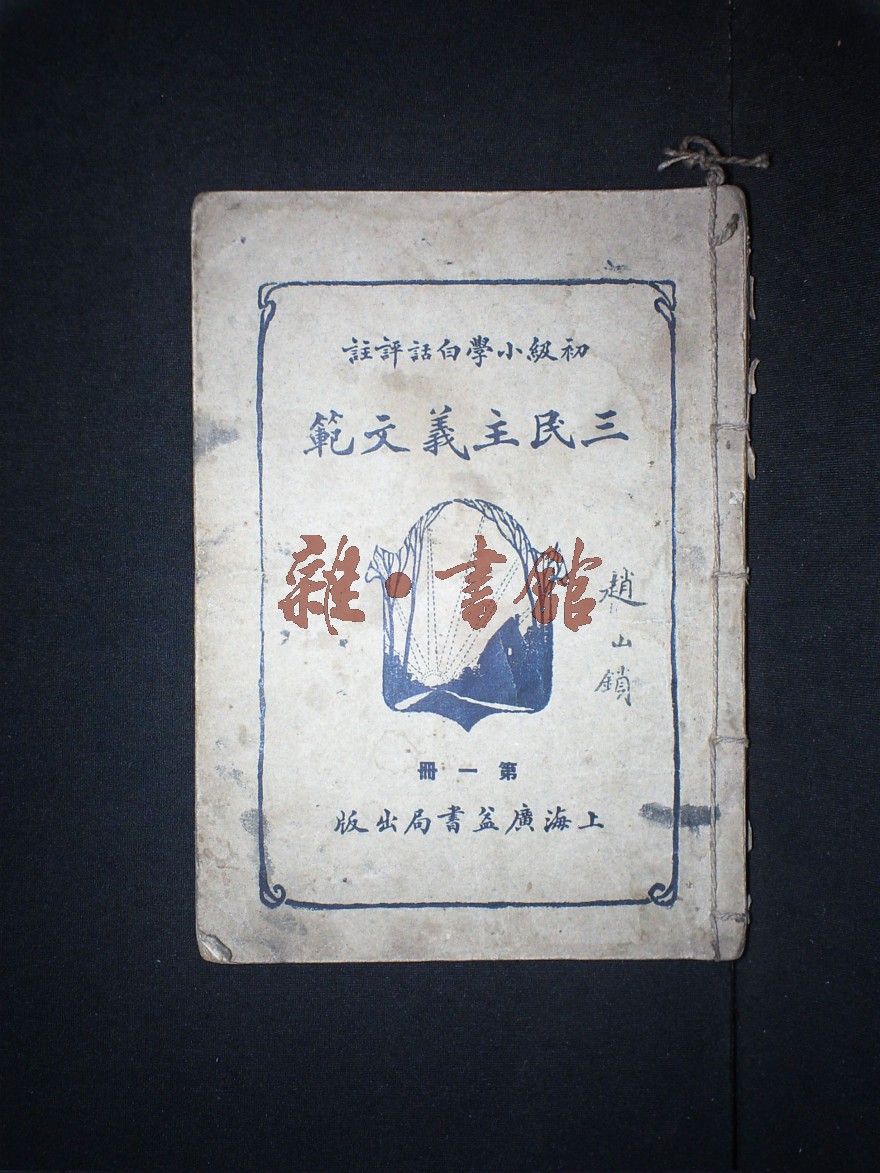 初級小學白話評註
三民主義文範
雜·書館
趙山鎖
第一冊
上海廣益書局出版